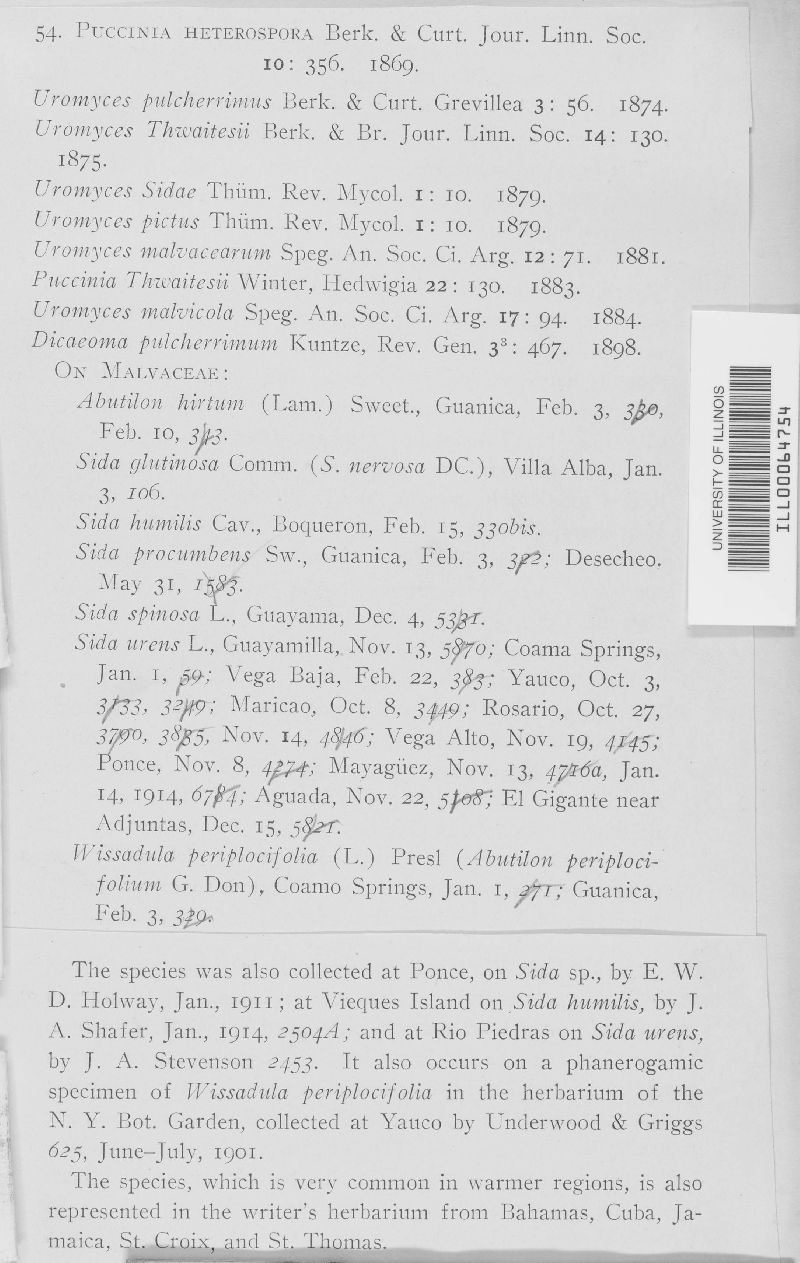 54. Puccinia heterospora Berk. & Curt. Jour. Linn. Soc.
10: 356. 1869.
Uromyces pulcherrimus Berk. & Curt. Grevillea 3: 56. 1874.
Uromyces Thwaitesii Berk. & Br. Jour. Linn. Soc. 14: 130.
1875.
Uromyces Sidae Thüm. Rev. Mycol. 1: 10. 1879.
Uromyces pictus Thüm. Rev. Mycol. 1: 10. 1879.
Uromyces malvacearum Speg. An. Soc. Ci. Arg. 12: 71. 1881.
Puccinia Thwaitesii Winter, Hedwigia 22: 130. 1883.
Uromyces malvicola Speg. An. Soc. Ci. Arg. 17: 94. 1884.
Dicaeoma pulcherrimum Kuntze, Rev. Gen. 3³: 467. 1898.
On Malvaceae:
Abutilon hirtum (Lam.) Sweet., Guanica, Feb. 3,
Feb. 10,
Sida glutinosa Comm. (S. nervosa DC.), Villa Alba, Jan.
3, 106.
Sida humilis Cav., Boqueron, Feb. 15, 330bis.
Sida procumbens Sw., Guanica, Feb. 3, Desecheo,
May 31, 1583.
Sida spinosa L., Guayama, Dec. 4,
Sida urens L., Guayamilla, Nov. 13, 5870; Coama Springs,
Jan. 1, 59; Vega Baja, Feb. 22, 383; Yauco, Oct. 3,
3133, Maricao, Oct. 8, 3449; Rosario, Oct. 27,
3790, Nov. 14, 4846; Vega Alto, Nov. 19, 4145;
Ponce, Nov. 8, Mayagüez, Nov. 13, 4716a, Jan.
14, 1914, 6784; Aguada, Nov. 22, 5108; El Gigante near
Adjuntas, Dec. 15, 5821.
Wissadula periplocifolia (L.) Presl (Abutilon periploci-
folium G. Don), Coamo Springs, Jan. 1, 271; Guanica,
Feb. 3,
The species was also collected at Ponce, on Sida sp., by E. W.
D. Holway, Jan., 1911; at Vieques Island on Sida humilis, by J.
A. Shafer, Jan., 1914, 2504A; and at Rio Piedras on Sida urens,
by J. A. Stevenson 2453. It also occurs on a phanerogamic
specimen of Wissadula periplocifolia in the herbarium of the
N. Y. Bot. Garden, collected at Yauco by Underwood & Griggs
625, June–July, 1901.
The species, which is very common in warmer regions, is also
represented in the writer's herbarium from Bahamas, Cuba, Ja-
maica, St. Croix, and St. Thomas.
UNIVERSITY OF ILLINOIS
ILL00064754